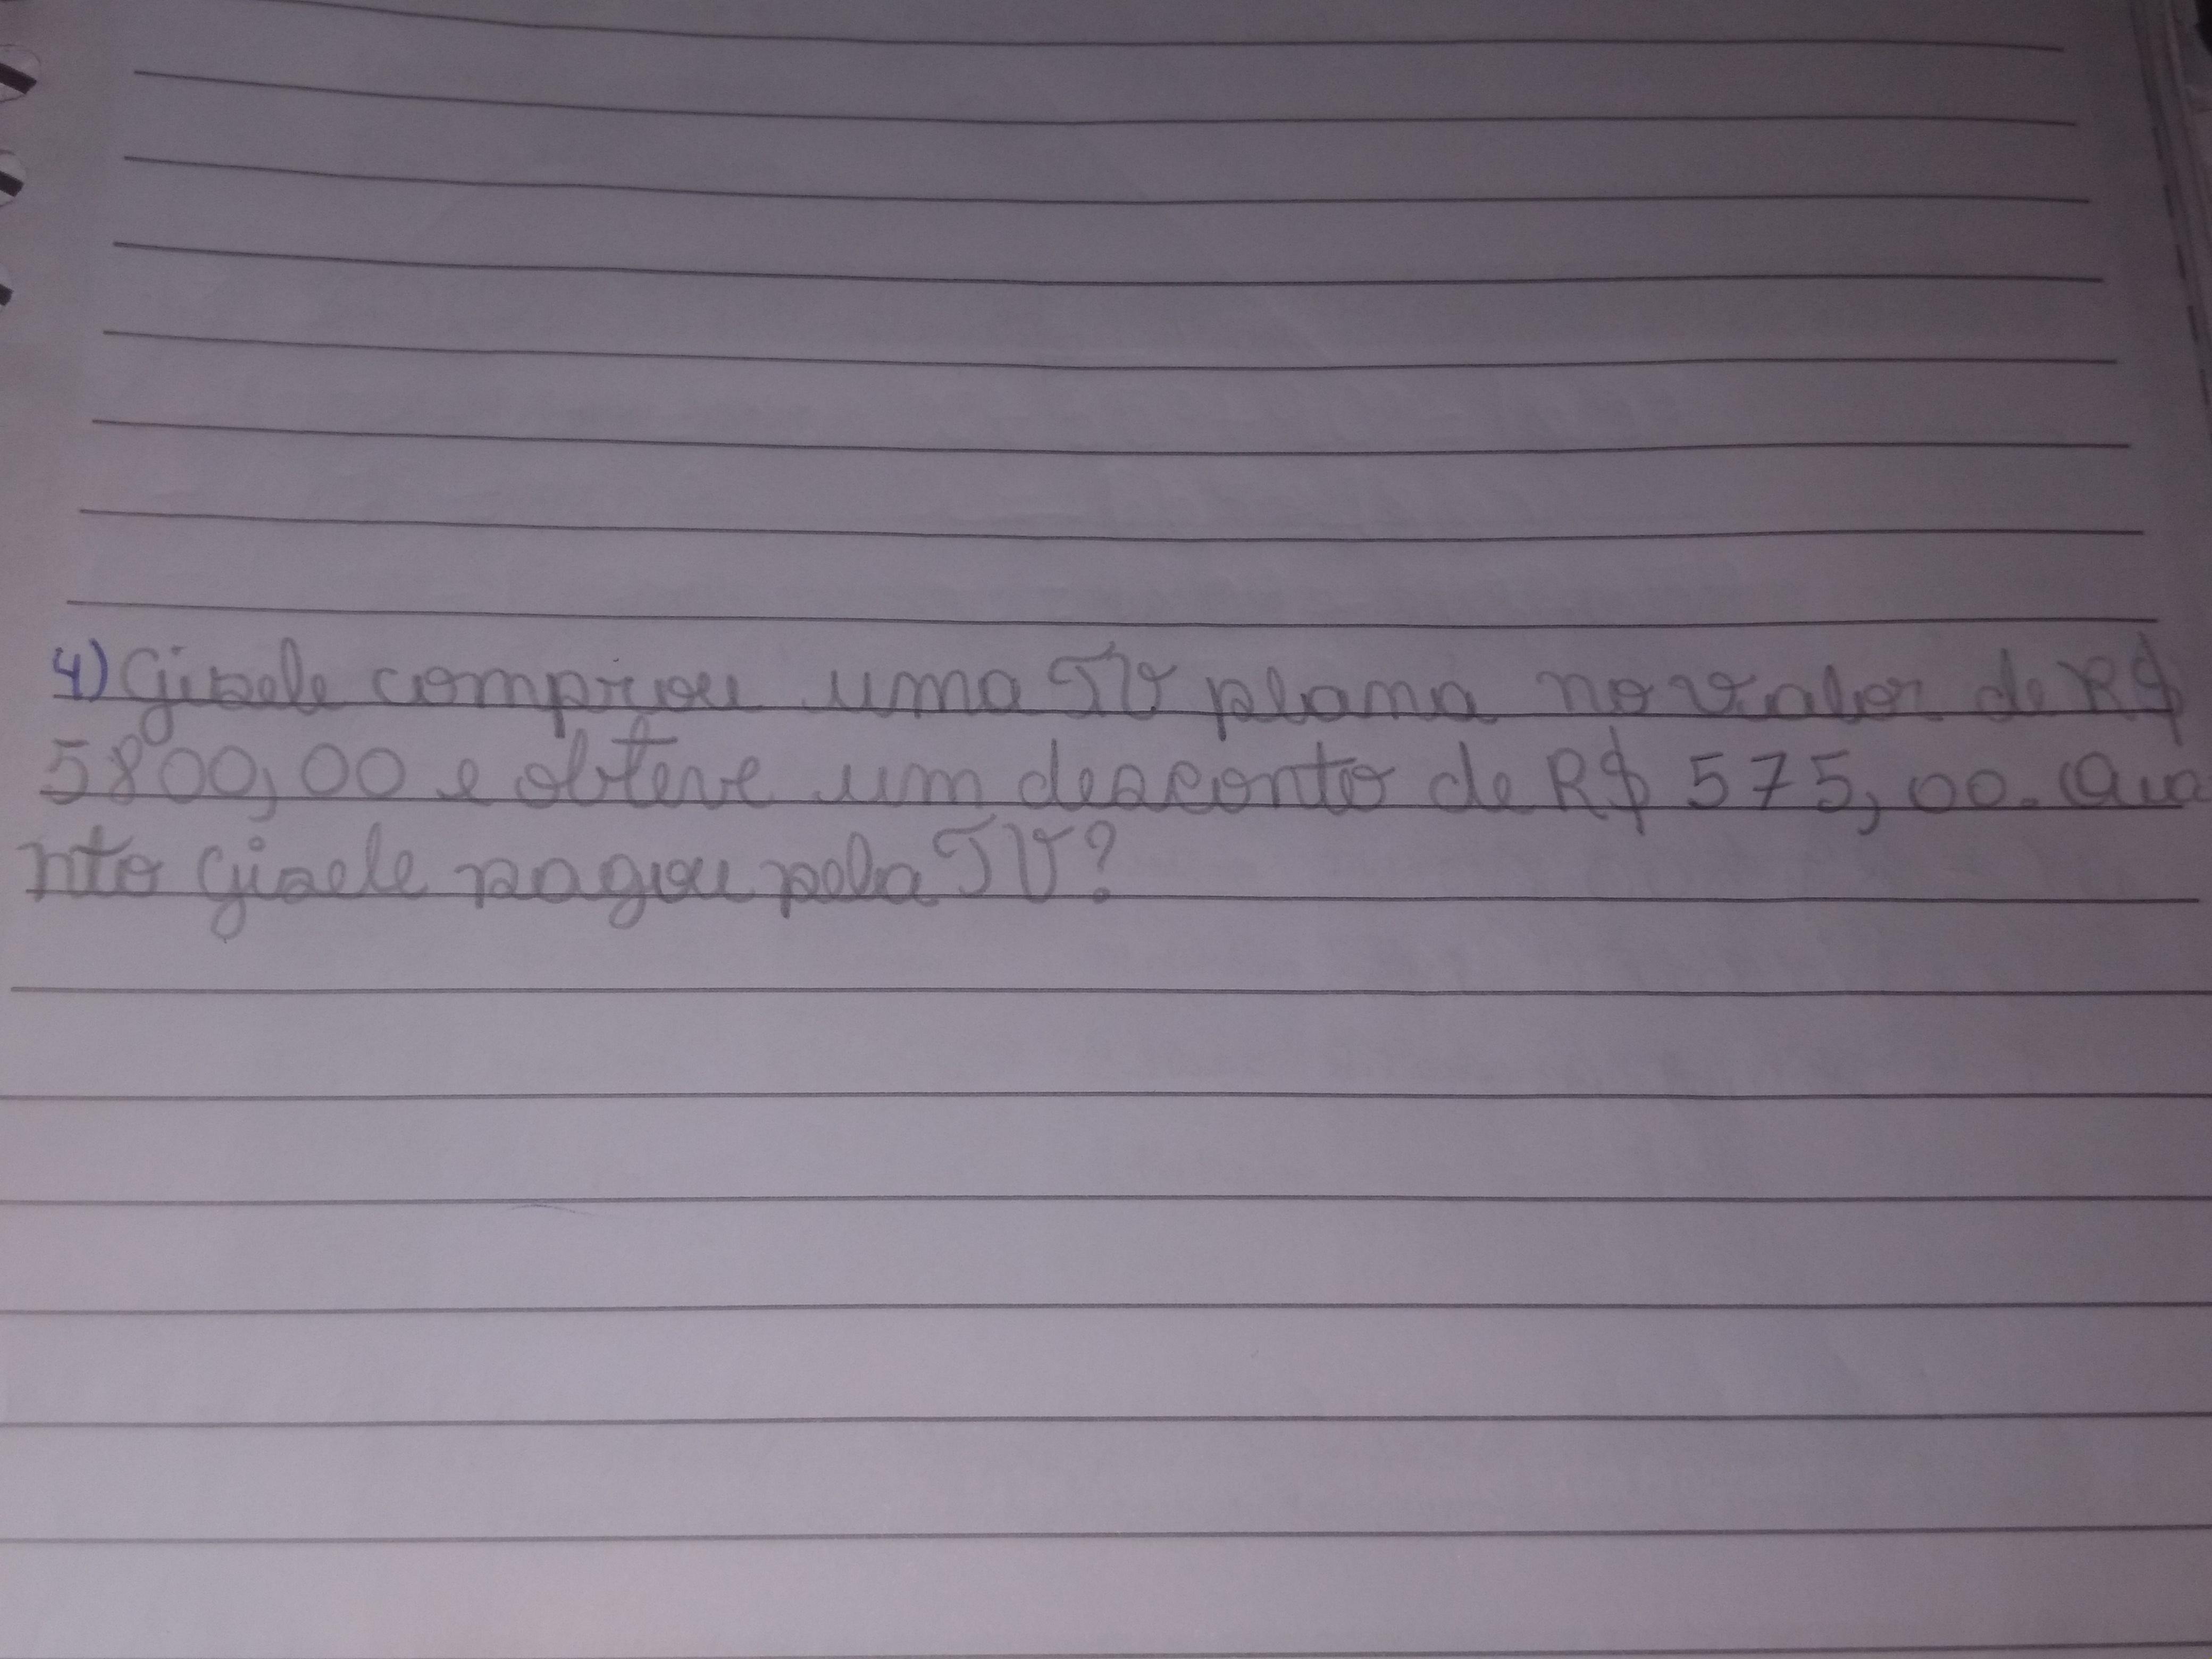 4) Gisele comprou uma TV plana no valor de R$
5800,00 e obteve um desconto de R$ 575,00. Qua
nto Gisele pagou pela TV?